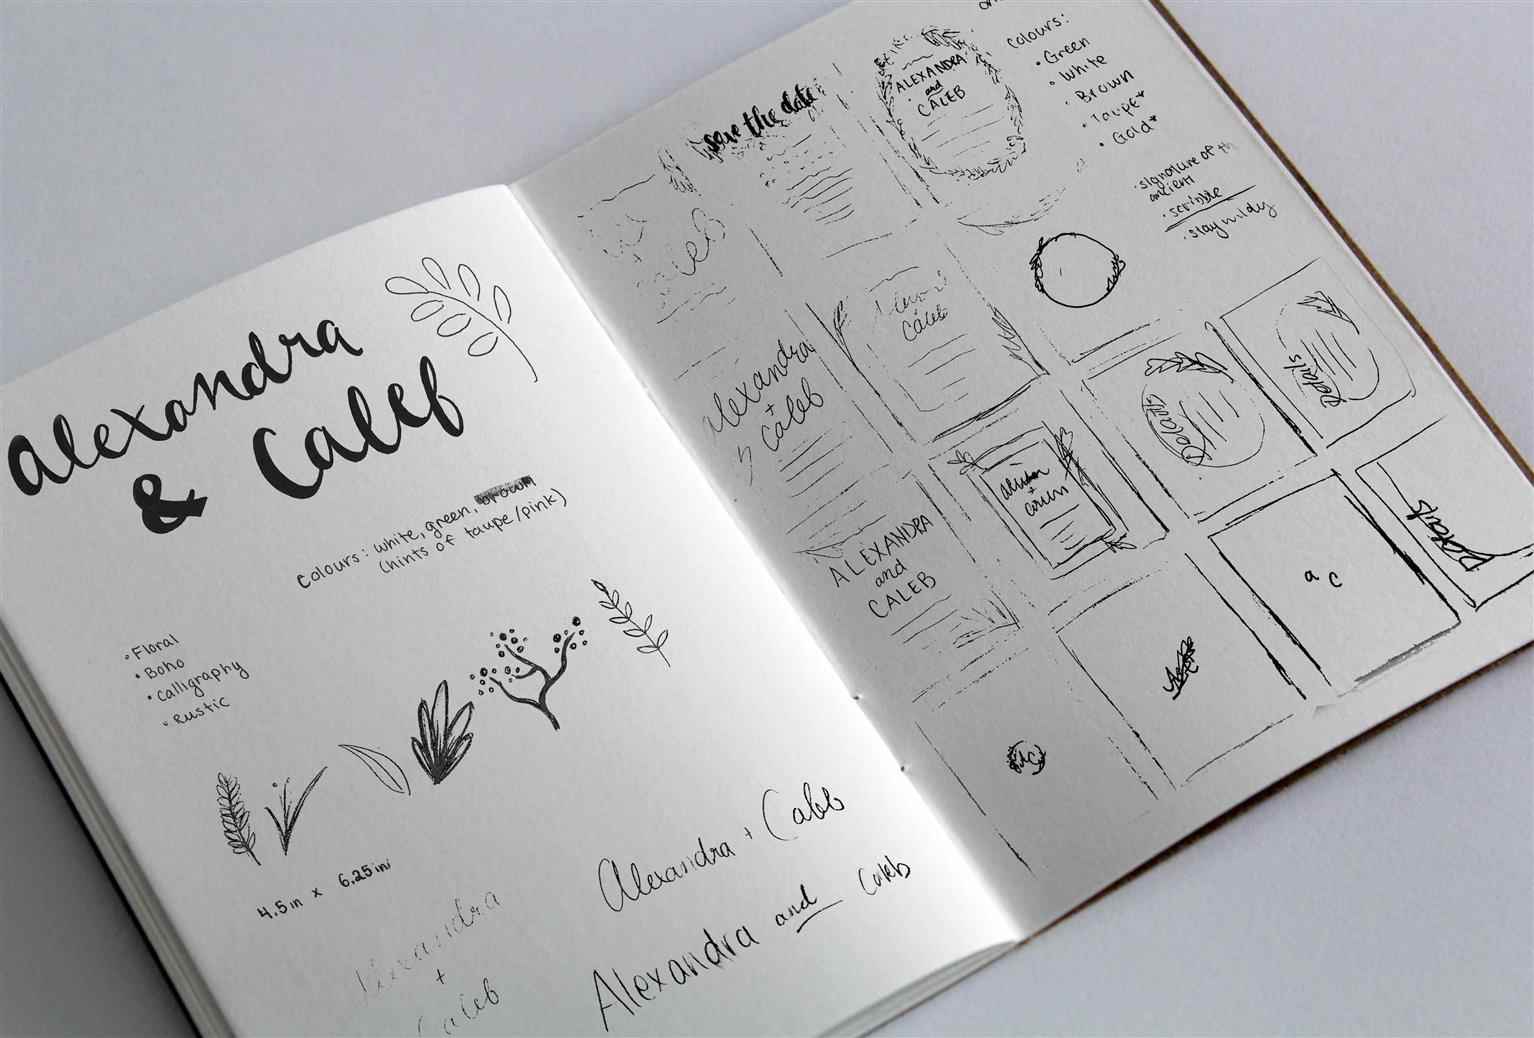 Alexandra
& Caleb
Colours: white, green, brown
(hints of taupe/pink)
• Floral
• Boho
• Calligraphy
• Rustic
4.5in x 6.25in
Alexandra
+
Caleb
Alexandra + Caleb
Alexandra and Caleb
save the date
Caleb
ALEXANDRA
and
CALEB
Colours:
• Green
• White
• Brown
• Taupe*
• Gold*
• signature of th
ancient
• scribble
• stay wildy
Caleb
Alexandra
+
Caleb
Details
Details
ALEXANDRA
and
CALEB
a c
Details